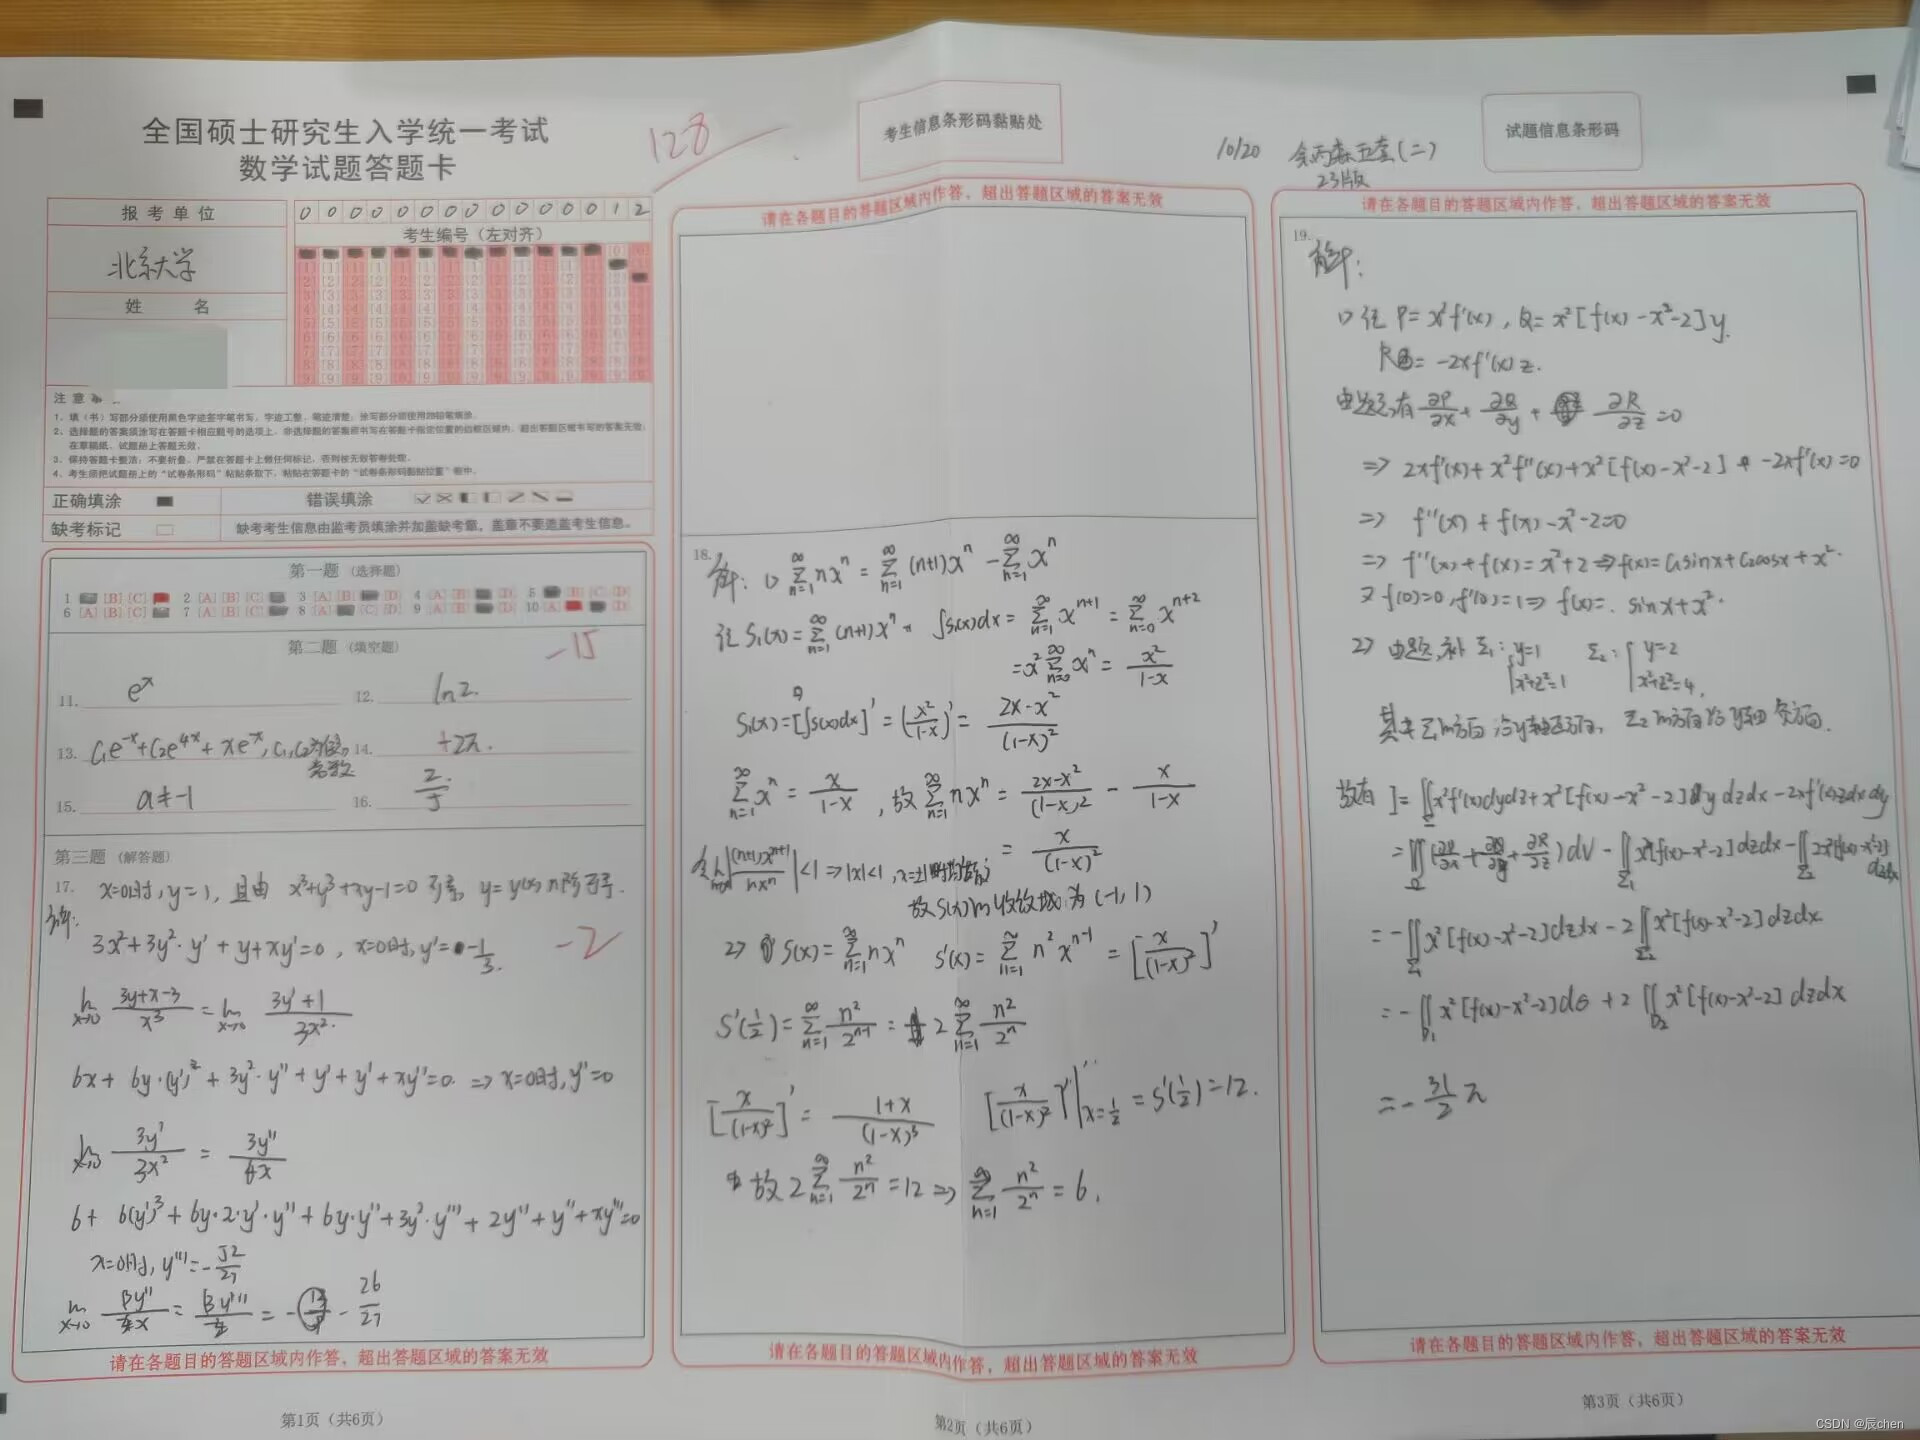 全国硕士研究生入学统一考试
数学试题答题卡
128
考生信息条形码黏贴处
10/20
余丙森五套(二)
23版
试题信息条形码
报考单位
北京大学
姓 名
0 0 0 0 0 0 0 0 0 0 0 0 0 1 2
考生编号（左对齐）
注意
1、填（书）写部分须使用黑色字迹签字笔书写，字迹工整，笔迹清楚；涂写部分须使用2B铅笔填涂。
2、选择题的答案须涂写在答题卡相应题号的选项上，非选择题的答案须书写在答题卡指定位置的边框区域内，超出答题区域书写的答案无效；
在草稿纸、试题册上答题无效。
3、保持答题卡整洁，不要折叠，严禁在答题卡上做任何标记，否则按无效答卷处理。
4、考生须把试题册上的“试卷条形码”粘贴条取下，粘贴在答题卡的“试卷条形码粘贴位置”框中。
正确填涂
错误填涂
缺考标记
缺考考生信息由监考员填涂并加盖缺考章，盖章不要遮盖考生信息。
第一题（选择题）
1 [B] [C] 2 [A] [B] [C] 3 [A] [B] [D] 4 [A] [B] [D] 5 [B] [C] [D]
6 [A] [B] [C] 7 [A] [B] [C] 8 [A] [C] [D] 9 [A] [B] [D] 10 [A] [D]
第二题（填空题）
-15
11. eˣ
12. ln2.
13. C₁e⁻ˣ+C₂e⁴ˣ+xe⁻ˣ, C₁,C₂为任意常数
14. +2π.
15. a≠-1
16. 2/5
第三题（解答题）
17. x=0时, y=1, 且由 x³+y³+xy-1=0 可得, y=y(x) n阶可导.
解:
3x²+3y²·y'+y+xy'=0, x=0时, y'=-1/3.
-2
lim x→0 (3y+x-3)/x³ = lim x→0 (3y'+1)/3x².
6x+6y·(y')²+3y²·y''+y'+y'+xy''=0. ⇒ x=0时, y''=0
lim x→0 3y'/3x² = 3y''/6x
6+6(y')³+6y·2·y'·y''+6y·y''+3y²·y'''+2y''+y''+xy'''=0
x=0时, y'''=-52/27
-26/27
请在各题目的答题区域内作答，超出答题区域的答案无效
第1页（共6页）
请在各题目的答题区域内作答，超出答题区域的答案无效
18.
解: 1) ∑_{n=1}^∞ nxⁿ = ∑_{n=1}^∞ (n+1)xⁿ - ∑_{n=1}^∞ xⁿ
记 S₁(x)=∑_{n=1}^∞ (n+1)xⁿ, ∫S₁(x)dx = ∑_{n=1}^∞ xⁿ⁺¹ = ∑_{n=0}^∞ xⁿ⁺²
= x²∑_{n=0}^∞ xⁿ = x²/(1-x)
S₁(x)=[∫S(x)dx]' = (x²/(1-x))' = (2x-x²)/(1-x)²
∑_{n=1}^∞ xⁿ = x/(1-x), 故 ∑_{n=1}^∞ nxⁿ = (2x-x²)/(1-x)² - x/(1-x)
= x/(1-x)²
令 lim n→∞ |(n+1)xⁿ⁺¹/nxⁿ| <1 ⇒ |x|<1, x=±1时均发散
故S(x)的收敛域为(-1,1)
2) S(x)=∑_{n=1}^∞ nxⁿ S'(x)=∑_{n=1}^∞ n²xⁿ⁻¹ = [x/(1-x)²]'
S'(1/2)=∑_{n=1}^∞ n²/2ⁿ⁻¹ = 2∑_{n=1}^∞ n²/2ⁿ
[x/(1-x)²]' = (1+x)/(1-x)³ [x/(1-x)²]'|_{x=1/2} = S'(1/2)=12.
故 2∑_{n=1}^∞ n²/2ⁿ=12 ⇒ ∑_{n=1}^∞ n²/2ⁿ = 6.
请在各题目的答题区域内作答，超出答题区域的答案无效
第2页（共6页）
请在各题目的答题区域内作答，超出答题区域的答案无效
19.
解:
1) 记 P=x²f'(x), Q=x²[f(x)-x²-2]y.
R=-2xf'(x)z.
由题意,有 ∂P/∂x+∂Q/∂y+∂R/∂z=0
⇒ 2xf'(x)+x²f''(x)+x²[f(x)-x²-2] + -2xf'(x)=0
⇒ f''(x)+f(x)-x²-2=0
⇒ f''(x)+f(x)=x²+2 ⇒ f(x)=C₁sinx+C₂cosx+x².
又 f(0)=0, f'(0)=1 ⇒ f(x)= sinx+x².
2) 由题, 补 Σ₁: { y=1 Σ₂: { y=2
x²+z²=1 x²+z²=4.
其中Σ₁的方向沿y轴正方向, Σ₂的方向沿y轴负方向.
故有 I=∬_Σ x²f'(x)dydz+x²[f(x)-x²-2]y dzdx-2xf'(x)zdxdy
=∭_Ω(∂P/∂x+∂Q/∂y+∂R/∂z)dV-∬_{Σ₁} x²[f(x)-x²-2]dzdx-∬_{Σ₂} 2x²[f(x)-x²-2]dzdx
=-∬_{Σ₁} x²[f(x)-x²-2]dzdx-2∬_{Σ₂} x²[f(x)-x²-2]dzdx
=-∬_{D₁} x²[f(x)-x²-2]dσ+2∬_{D₂} x²[f(x)-x²-2]dzdx
=-31/2 π
请在各题目的答题区域内作答，超出答题区域的答案无效
第3页（共6页）
CSDN @辰chen